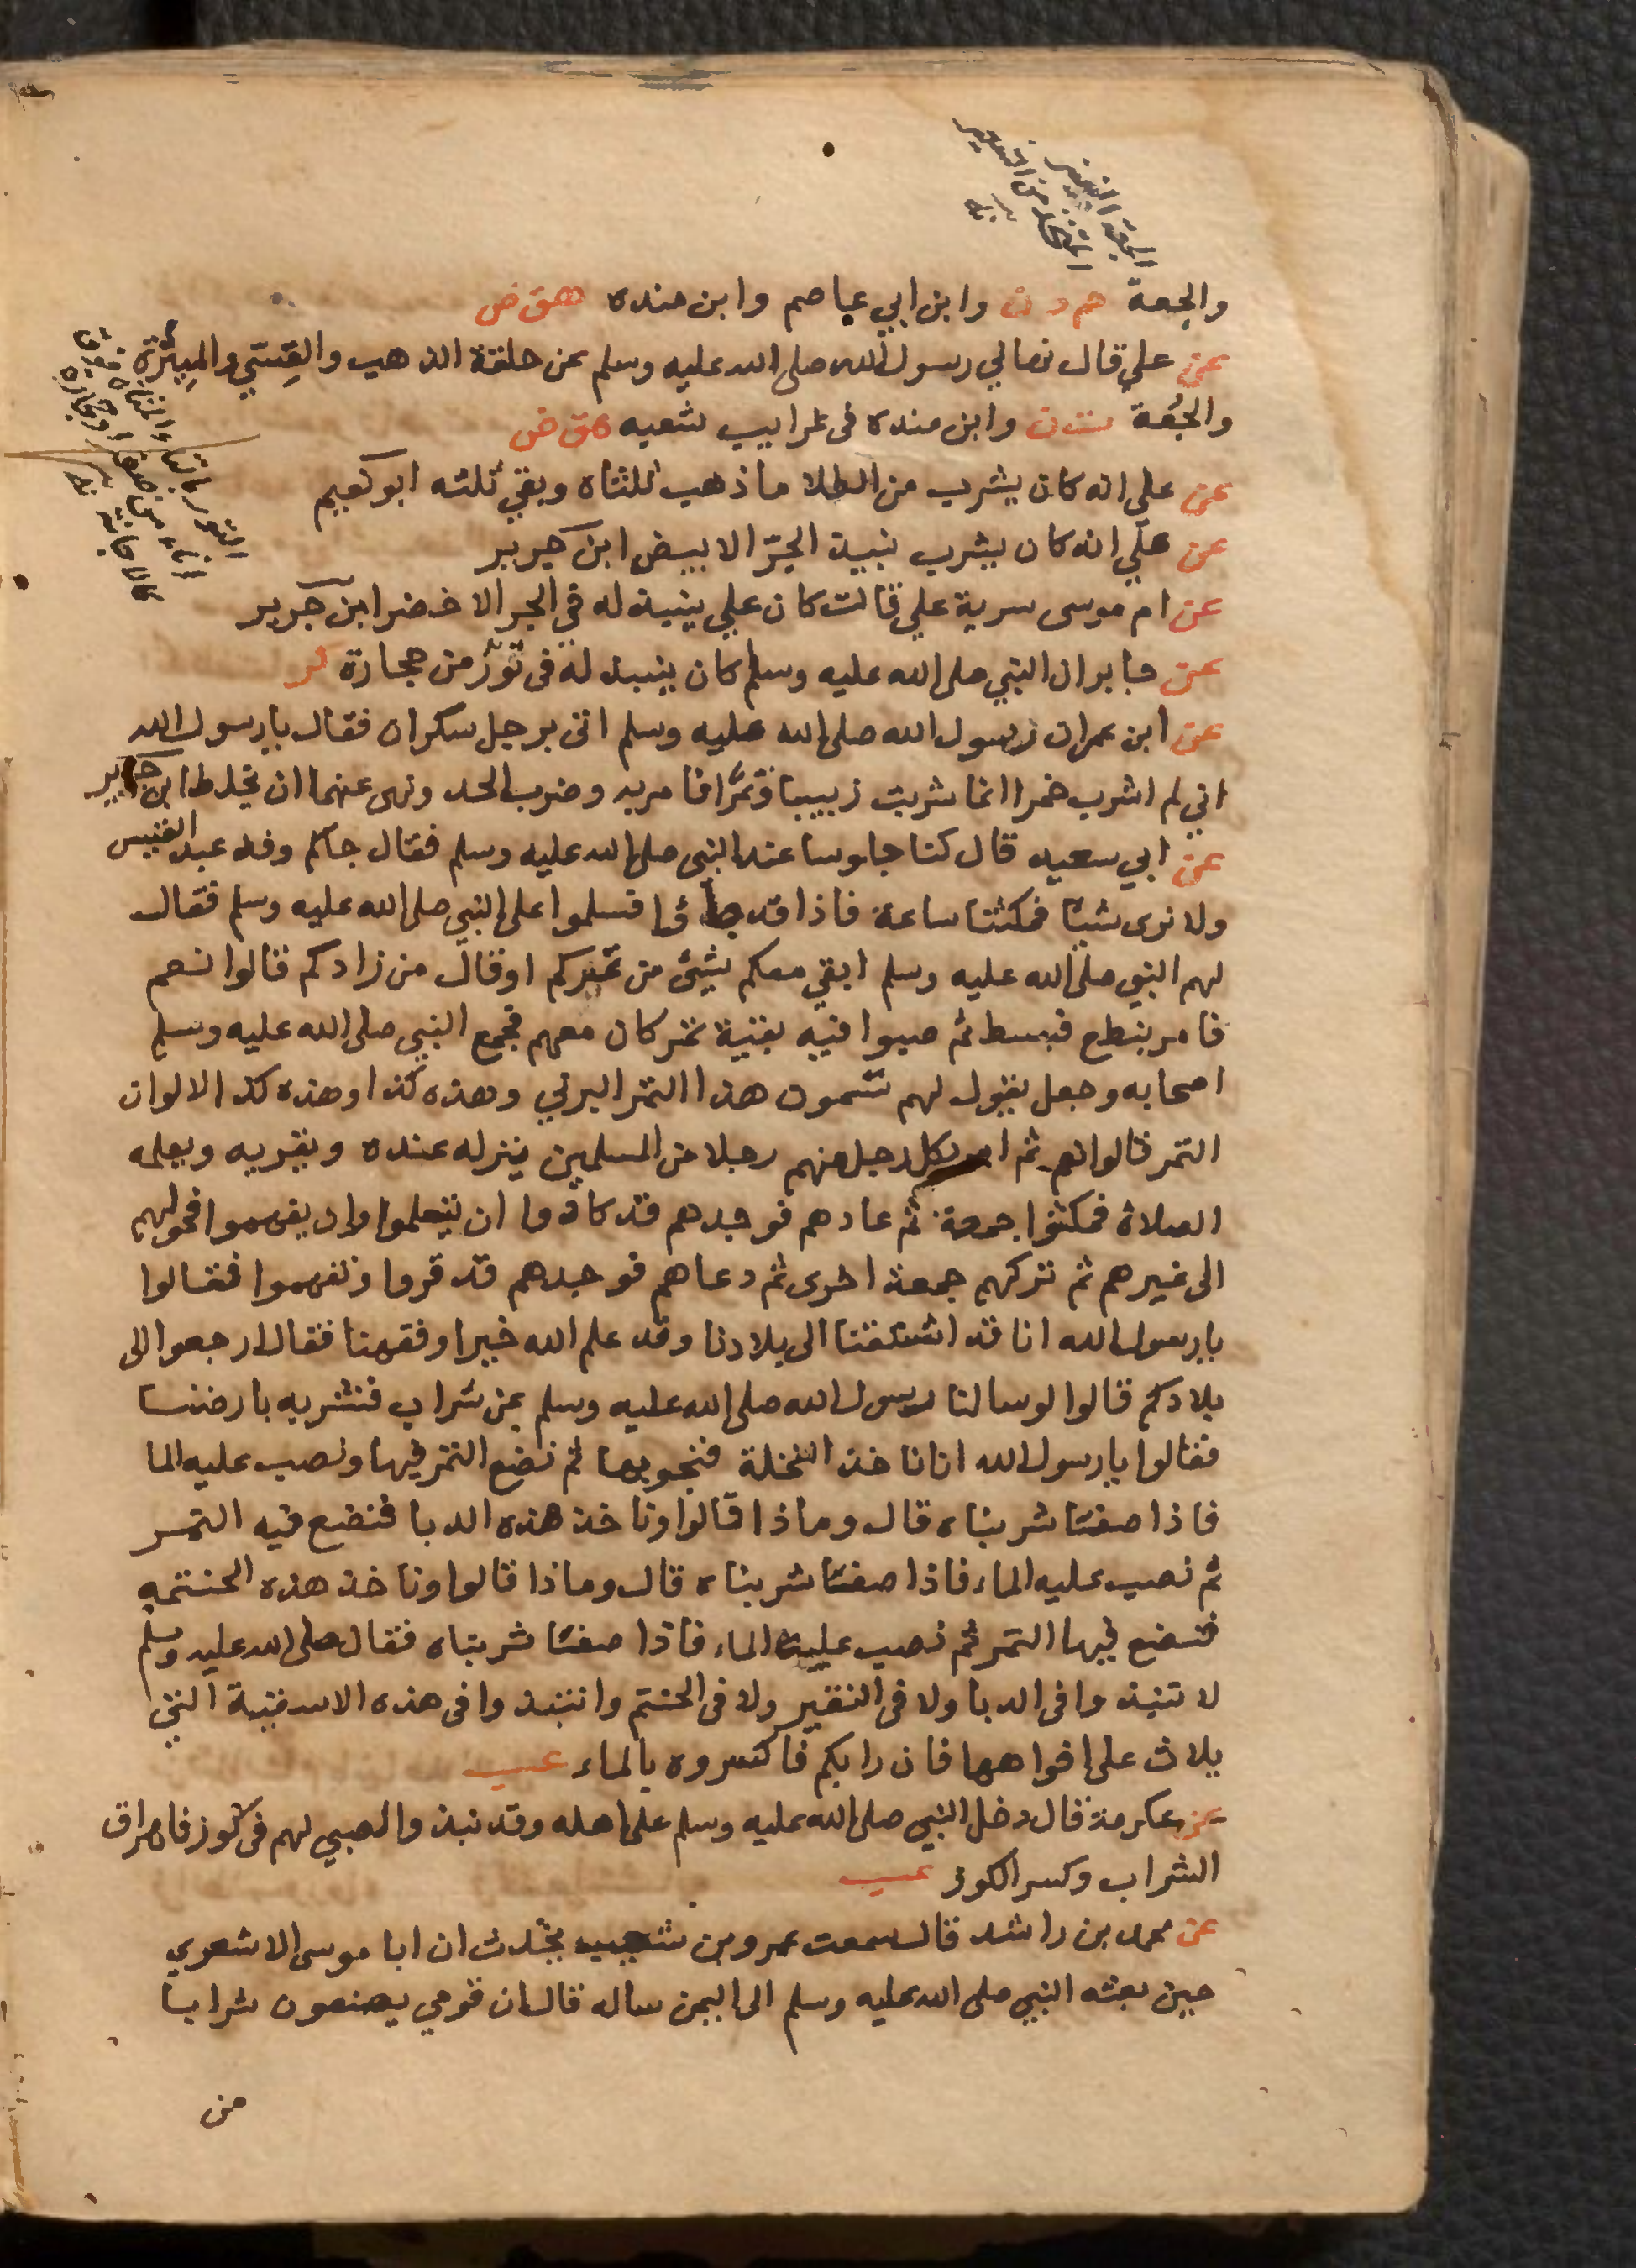 الجعة النبيذ
المتخذ من الشعير
نه
والجعة حم د ن وابن ابي عاصم وابن منده هق ض
عن علي قال نهاني رسول الله صلى الله عليه وسلم عن حلقة الذهب والقسي والميثرة
والجعة ت ن وابن منده في غرايب شعبه هق ض
عن علي انه كان يشرب من الطلا ما ذهب ثلثاه وبقي ثلثه ابو نعيم
عن علي انه كان يشرب نبيذ الجر الابيض ابن جرير
عن ام موسى سرية علي قالت كان علي ينبذ له في الجر الاخضر ابن جرير
عن جابر ان النبي صلى الله عليه وسلم كان ينبذ له في تور من حجارة كر
عن ابن عمر ان رسول الله صلى الله عليه وسلم اتى برجل سكران فقال يا رسول الله
اني لم اشرب خمرا انما شربت زبيبا وتمرا فامر به وضرب الحد ونهى عنهما ان يخلط ابن جرير
عن ابي سعيد قال كنا جلوسا عند النبي صلى الله عليه وسلم فقال جاكم وفد عبد القيس
ولا نرى شيئا فمكثنا ساعة فاذا قد جاؤا فسلموا على النبي صلى الله عليه وسلم فقال
لهم النبي صلى الله عليه وسلم ابقي معكم شيئ من تمركم او قال من زادكم قالوا نعم
فامر بنطع فبسط ثم صبوا فيه بقية تمر كان معهم فجمع النبي صلى الله عليه وسلم
اصحابه وجعل يقول لهم تسمون هذا التمر البرني وهذه كذا وهذه كذا لالوان
التمر قالوا نعم ثم امر بكل رجل منهم رجلا من المسلمين ينزله عنده ويقريه ويعلمه
الصلاة فمكثوا جمعة ثم عادهم فوجدهم قد كادوا ان يتعلموا وان يفهموا فحولهم
الى غيرهم ثم تركهم جمعة اخرى ثم دعاهم فوجدهم قد قروا وتفهموا فقالوا
يا رسول الله انا قد اشتقنا الى بلادنا وقد علم الله خيرا وفقهنا فقال ارجعوا الى
بلادكم قالوا لو سالنا رسول الله صلى الله عليه وسلم عن شراب فنشربه بارضنا
فقالوا يا رسول الله انا ناخذ النخلة فنجوبها ثم نضع التمر فيها ونصب عليه الما
فاذا صفتا شربناه قال وماذا قالوا وناخذ هذه الدبا فنضع فيه التمر
ثم نصب عليه الماء فاذا صفتا شربناه قال وماذا قالوا وناخذ هذه الحنتمه
فنضع فيها التمر ثم نصب عليه الماء فاذا صفتا شربناه فقال صلى الله عليه وسلم
لا تنبذوا في الدبا ولا في النقير ولا في الحنتم وانتبذوا في هذه الاسقية التي
يلاث على افواهها فان رابكم فاكسروه بالماء عب
عن عكرمة قال دخل النبي صلى الله عليه وسلم على اهله وقد نبذوا لصبي لهم في كوز فاهراق
الشراب وكسر الكوز عب
عن محمد بن راشد قال سمعت عمرو بن شعيب يحدث ان ابا موسى الاشعري
حين بعثه النبي صلى الله عليه وسلم الى اليمن ساله قال ان قومي يصنعون شرابا
من